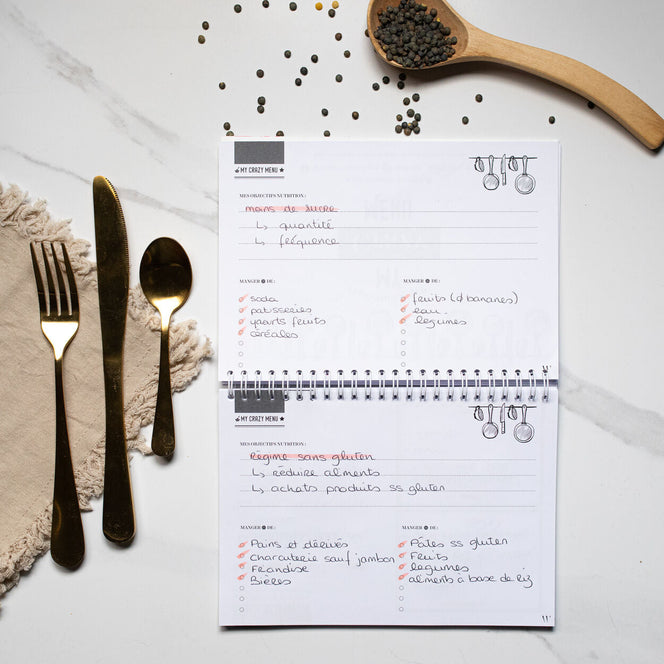 MY CRAZY MENU
MES OBJECTIFS NUTRITION :
moins de sucre
↳ quantité
↳ fréquence
MANGER DE :
soda
patisseries
yaourts fruits
céréales
MANGER DE :
fruits (≠ bananes)
eau.
légumes
MY CRAZY MENU
MES OBJECTIFS NUTRITION :
Régime sans gluten
↳ réduire aliments
↳ achats produits ss gluten
MANGER DE :
Pains et dérivés
charcuterie sauf jambon
Friandise
Bières
MANGER DE :
Pâtes ss gluten
Fruits
légumes
aliments à base de riz